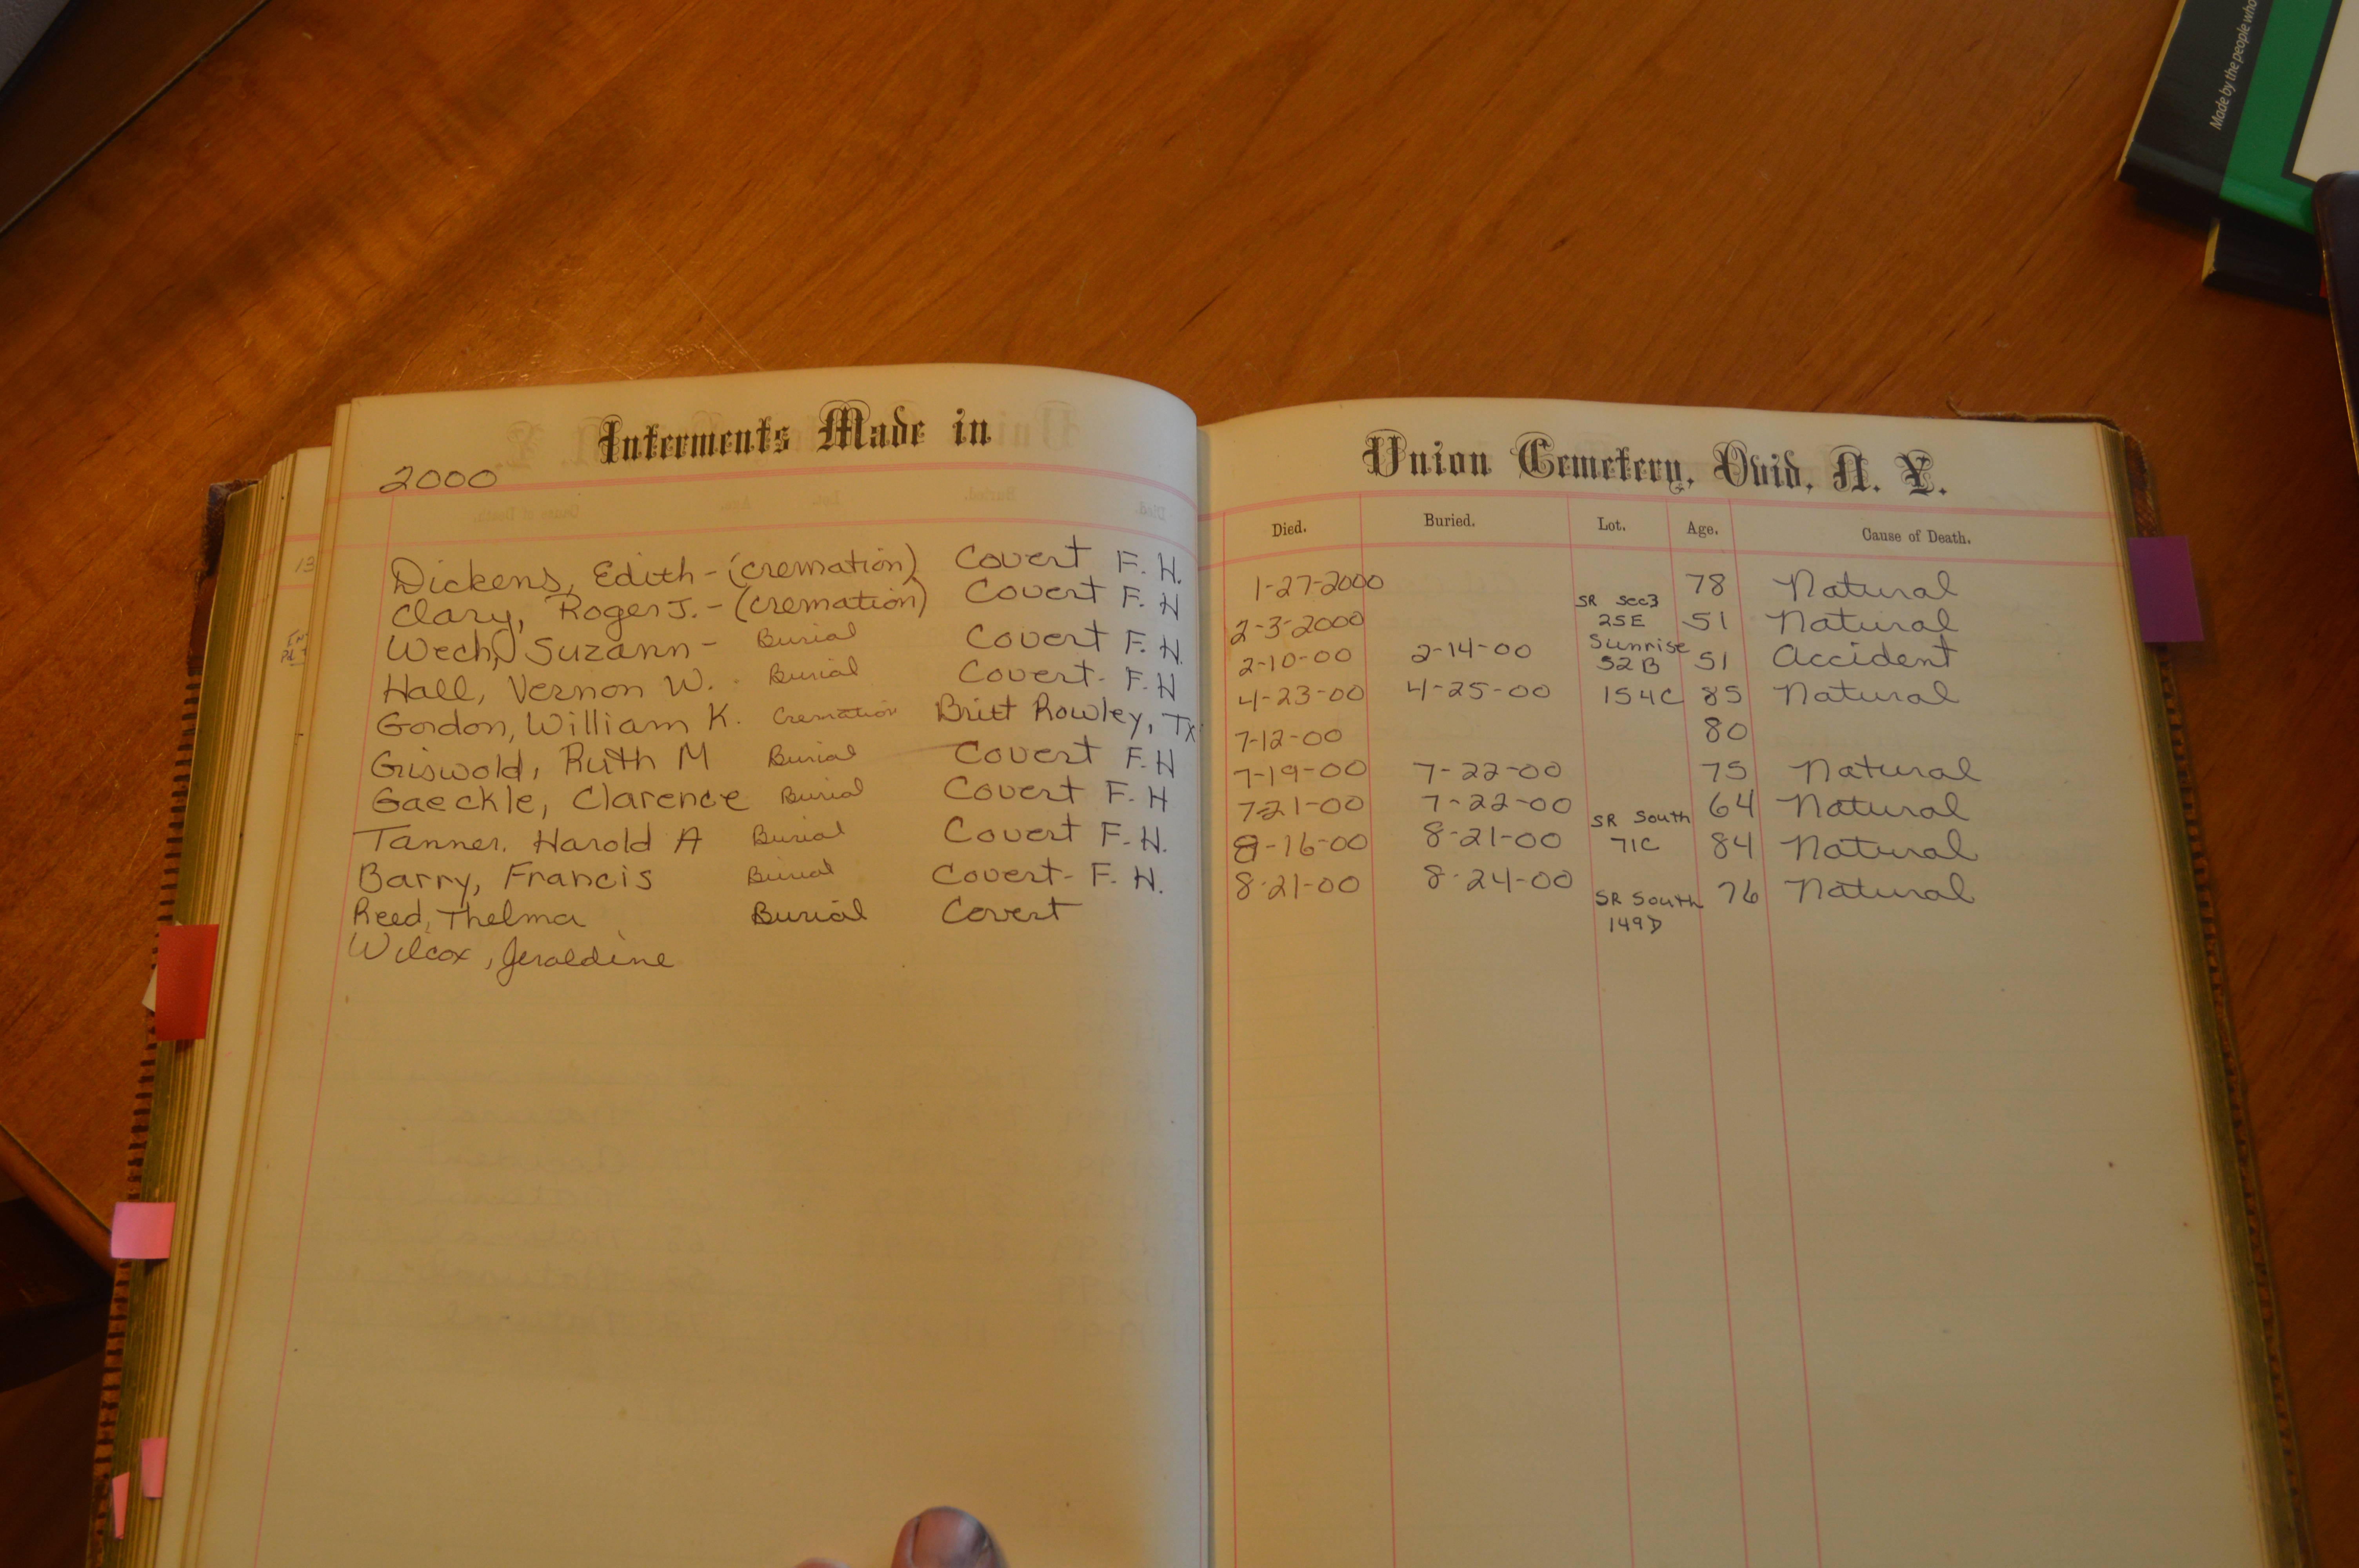 Interments Made in Union Cemetery, Ovid, N. Y.
2000
Died. Buried. Lot. Age. Cause of Death.
Dickens, Edith - (cremation) Covert F. H. 1-27-2000 78 Natural
Clary, Roger J. - (cremation) Covert F. H 2-3-2000 SR Sec3 25E 51 Natural
Wech, Suzann - Burial Covert F. H. 2-10-00 2-14-00 Sunrise 52B 51 Accident
Hall, Vernon W. - Burial Covert - F. H 4-23-00 4-25-00 154C 85 Natural
Gordon, William K. Cremation Britt Rowley, Tx 7-12-00 80
Griswold, Ruth M Burial Covert F. H 7-19-00 7-22-00 75 Natural
Gaeckle, Clarence Burial Covert F. H 7-21-00 7-22-00 64 Natural
Tanner, Harold A Burial Covert F. H. 8-16-00 8-21-00 SR South 71C 84 Natural
Barry, Francis Burial Covert - F. H. 8-21-00 8-24-00 76 Natural
Reed, Thelma Burial Covert SR South 149D
Wilcox, Jeraldine
Made by the people who
13